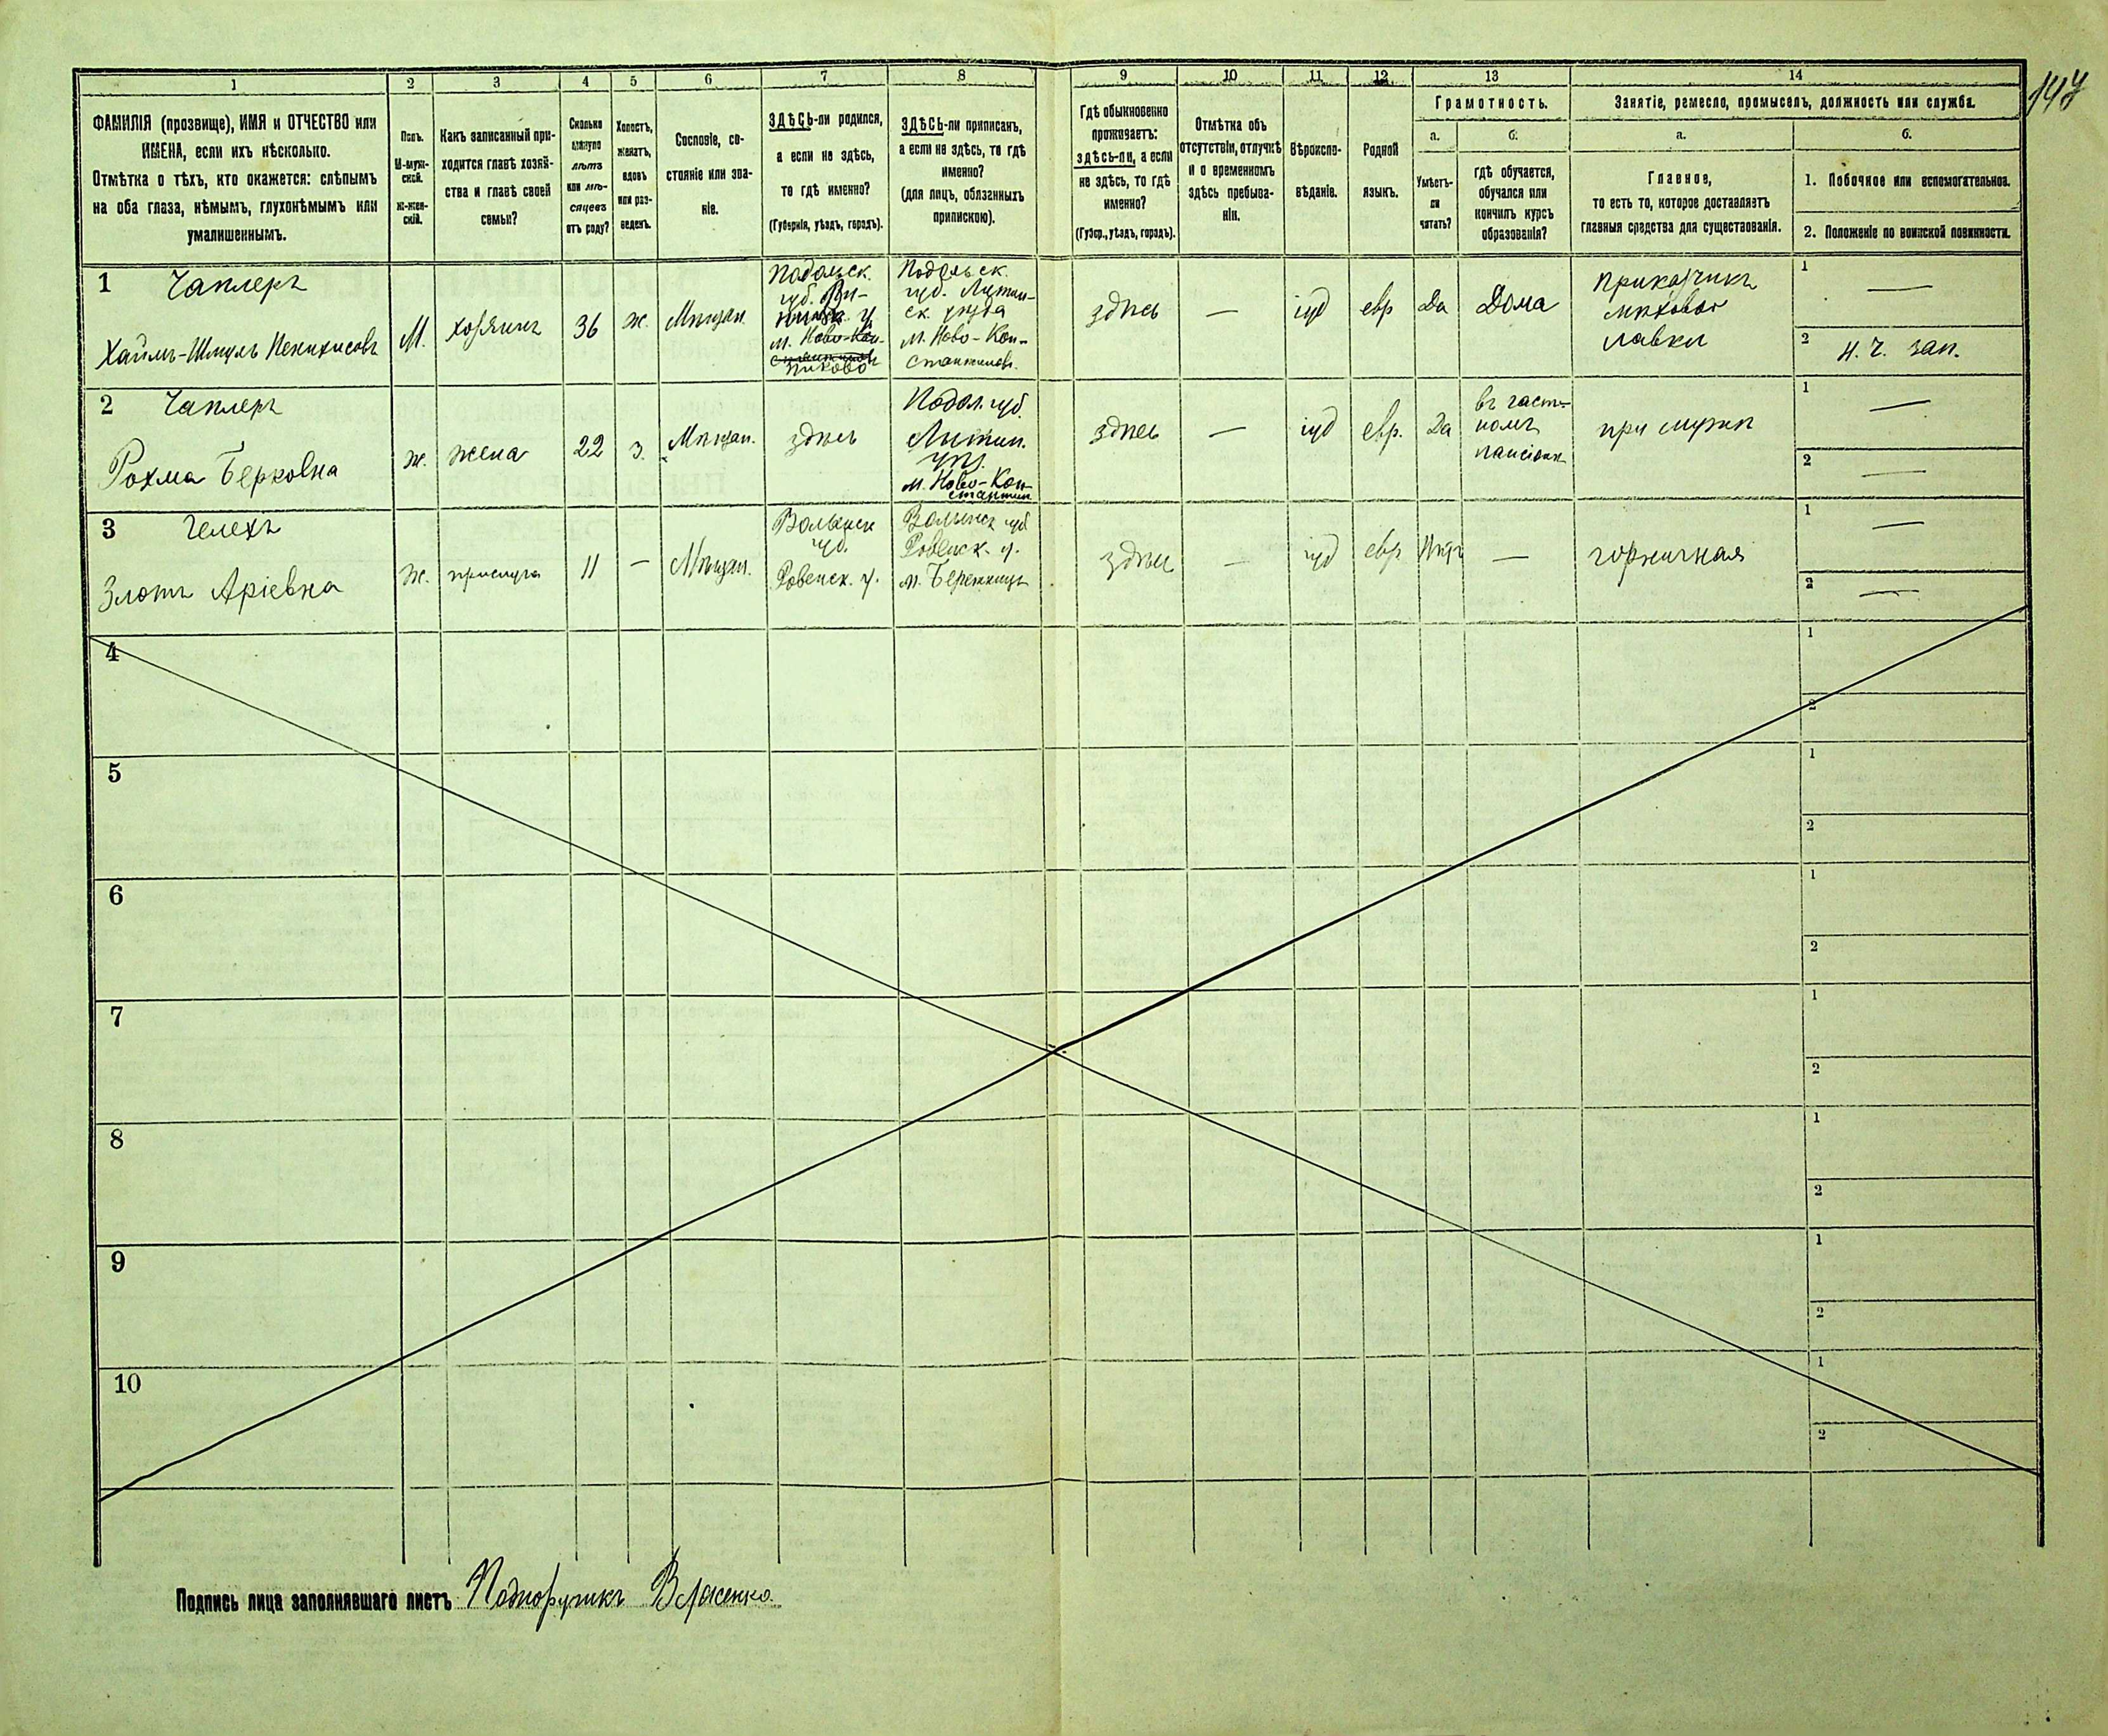 147
1 2 3 4 5 6 7 8 9 10 11 12 13 14
ФАМИЛІЯ (прозвище), ИМЯ и ОТЧЕСТВО или
ИМЕНА, если ихъ нѣсколько.
Отмѣтка о тѣхъ, кто окажется: слѣпымъ
на оба глаза, нѣмымъ, глухонѣмымъ или
умалишеннымъ.
Полъ.
М-муж-
ской.
Ж-жен-
скій.
Какъ записанный при-
ходится главѣ хозяй-
ства и главѣ своей
семьи?
Сколько
минуло
лѣтъ
или мѣ-
сяцевъ
отъ роду?
Холостъ,
женатъ,
вдовъ
или раз-
веденъ.
Сословіе, со-
стояніе или зва-
ніе.
ЗДѢСЬ-ли родился,
а если не здѣсь,
то гдѣ именно?
(Губернія, уѣздъ, городъ).
ЗДѢСЬ-ли приписанъ,
а если не здѣсь, то гдѣ
именно?
(для лицъ, обязанныхъ
припискою).
Гдѣ обыкновенно
проживаетъ:
здѣсь-ли, а если
не здѣсь, то гдѣ
именно?
(Губер., уѣздъ, городъ).
Отмѣтка объ
отсутствіи, отлучкѣ
и о временномъ
здѣсь пребыва-
ніи.
Вѣроиспо-
вѣданіе.
Родной
языкъ.
Грамотность.
а.
Умѣетъ-
ли
читать?
б.
гдѣ обучается,
обучался или
кончилъ курсъ
образованія?
Занятіе, ремесло, промыселъ, должность или служба.
а.
Главное,
то есть то, которое доставляетъ
главныя средства для существованія.
б.
1. Побочное или вспомогательное.
2. Положеніе по воинской повинности.
1 Чаплеръ
Хаимъ-Шмуль
М.
хозяинъ
36
ж.
Мѣщан.
Подольск.
губ. Ви-
м. Ново-Кон-
Пиково
Подольск.
губ. Литин-
ск уѣзда
м. Ново-Кон-
стантинов.
здѣсь
—
іуд
евр
Да
Дома
Приказчикъ
мѣховой
лавки
1 —
2 Н. Ч. зап.
2 Чаплеръ
Рохма Берковна
ж.
жена
22
з.
Мѣщан.
здѣсь
Подол. губ.
Литин.
уѣз.
м. Ново-Кон-
стантин
здѣсь
—
іуд
евр.
Да
въ част-
номъ
пансіонѣ
при мужѣ
1 —
2 —
3 Гелехъ
Злотъ Аріевна
Ж.
прислуга
11
—
Мѣщан.
Волынск
губ.
Ровенск. у.
Волынск губ
Ровенск. у.
м. Бережницы
здѣсь
—
іуд
евр
Нѣтъ
—
горничная
1 —
2 —
4
1
2
5
1
2
6
1
2
7
1
2
8
1
2
9
1
2
10
1
2
Подпись лица заполнявшаго листъ Подпоручикъ Власенко